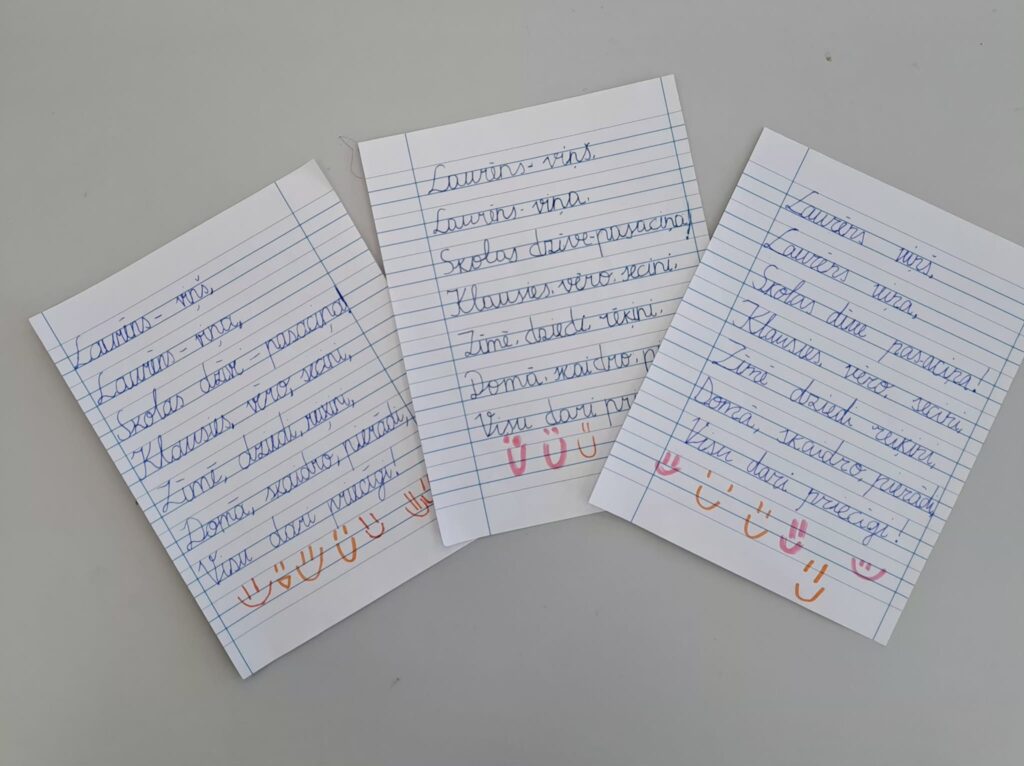 Laurēns - viņš,
Laurēns - viņa,
Skolas dzīv - pasaciņa!
Klausies, vēro, secini,
Zīmē, dziedi, rēķini,
Domā, skaidro, pierādi,
Visu dari priecīgi!
Laurēns - viņš.
Laurēns - viņa.
Skolas dzīve - pasaciņa!
Klausies, vēro, secini,
Zīmē, dziedi, rēķini,
Domā, skaidro, p
Visu dari pr
Laurēns viņš.
Laurēns viņa,
Skolas dzīve pasaciņa!
Klausies, vēro, secini
Zīmē dziedi rēiķini,
Domā, skaidro, pierādi
Visu dari priecīgi!